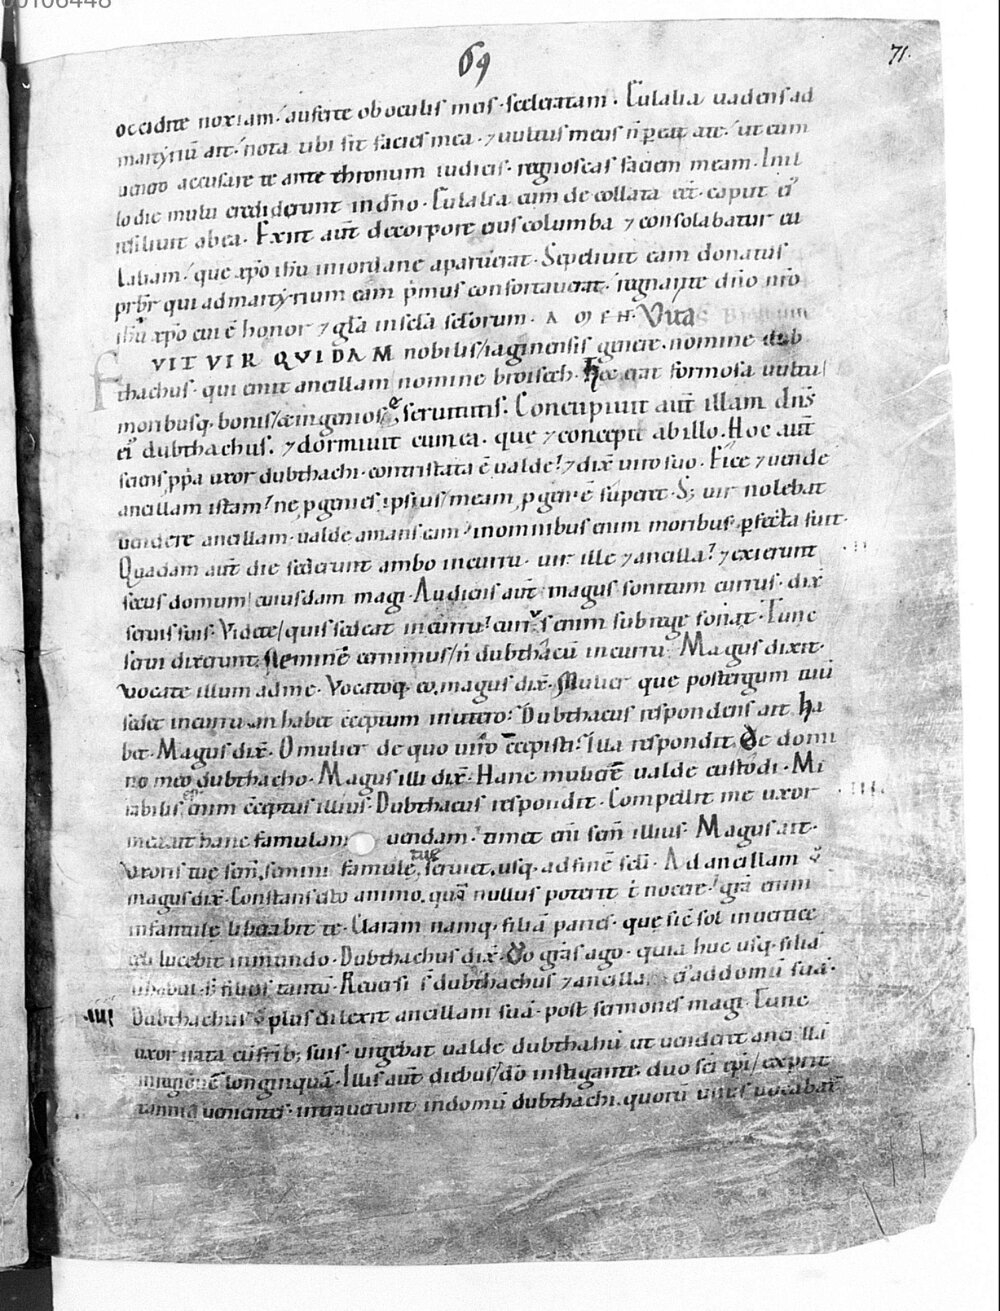 00106448
69
71.
occidite noxiam. auferte ob oculis meis sceleratam. Eulalia uadens ad
martyriũ ait. nota tibi sit facies mea. ⁊ uultus meus ñ ꝑeat a te. ut cum
uenero accusare te ante thronum iudicis. regnoscas faciem meam. In il
lo die multi crediderunt in dño. Eulalia cum decollata eēt. caput eiꝰ
ab ea. Exiit aut̄ de corpore eius columba ⁊ consolabatur eu
laliam. que xp̄o ih̄u in iordane aparuerat. Sepeliuit eam donatus
prb̄r qui ad martyrium eam p̄mus confortauerat. regnante dn̄o nr̄o
ih̄u xp̄o cui ē honor ⁊ gl̄a in sc̄la sc̄lorum. AMEN. Vita
FVIT VIR QVIDAM nobilis laginensis genere. nomine dub
thachus. qui emit ancillam nomine broisech. Hec erat formosa uultu
moribusq. bonis ⁊ ingeniosę seruitutis. Concupiuit aut̄ illam dn̄s
eiꝰ dubthachus. ⁊ dormiuit cum ea. que ⁊ concepit ab illo. Hoc aut̄
sciens ꝓpa uxor dubthachi. contristata ē ualde. ⁊ dix̄ uiro suo. Eice ⁊ uende
ancillam istam. ne ꝓgenies ipsius meam ꝓgeniē superet. S; uir nolebat
uendere ancillam. ualde amans eam. in omnibus enim moribus ꝑfecta fuit.
Quadam aut̄ die sederunt ambo in curru. uir ille ⁊ ancilla. ⁊ exierunt
secus domum cuiusdam magi. Audiens aut̄ magus sonitum currus. dix̄
seruis suis. Videte quis sedeat in curru. currꝰ enim sub rege sonat. Tunc
serui dixerunt. neminē cernimus ñ dubthacũ in curru. Magus dixit.
Vocate illum ad me. Vocatoq. eo. magus dix̄. Mulier que postergum tuũ
sedet in curru. an habet c̄ceptum in utero. Dubthacus respondens ait. ha
bet. Magus dix̄. O mulier de quo uiro c̄cepisti. Illa respondit. De domi
no meo dubthacho. Magus illi dix̄. Hanc mulierē ualde custodi. Mi
rabilis enim c̄ceptus illius. Dubthacus respondit. Compellit me uxor
mea ut hanc famulam uendam. timet eni sem̄ illius. Magus ait.
Vxoris tue sem̄. semini famule tue seruiet. usq. ad finē scl̄i. Ad ancillam ꝟ
magus dix̄. Constans esto animo. qm̄ nullus poterit t̄ nocere. gr̄a enim
infantule liberabit te. Claram namq. filiã paries. que sic̄ sol in uertice
celi lucebit in mundo. Dubthachus dix̄. Do gr̄as ago. quia huc usq. filiã
ñ habui. s; filios tantũ. Reuersi s̄ dubthachus ⁊ ancilla eiꝰ ad domũ suã.
Dubthachus plus dilexit ancillam suã. post sermones magi. Tunc
uxor irata cũ frīb; suis. urgebat ualde dubthahũ ut uenderet ancillã
in regionē longinquã. Illis aut̄ diebus dō instigante. duo sc̄i ep̄i ex prit
tannia uenientes. intrauerunt in domũ dubthachi. quorũ unus uocabat̄